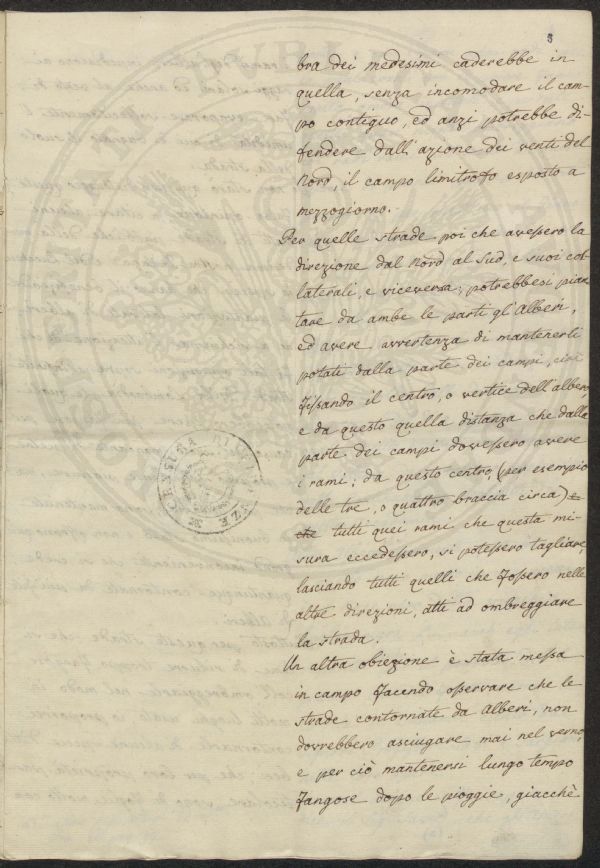 8
bra dei medesimi caderebbe in
quella, senza incomodare il cam-
po contiguo, ed anzi potrebbe di-
fendere dall'azione dei venti del
Nord, il campo limitrofo esposto a
mezzogiorno.
Per quelle strade poi che avessero la
direzione dal Nord al Sud, e suoi col-
laterali, e viceversa; potrebbesi pian
tare da ambe le parti gl'Alberi,
ed avere avvertenza di mantenerli
potati dalla parte dei campi, cioè
fissando il centro, o vertice dell'albero,
e da questo quella distanza che dalla
parte dei campi dovessero avere
i rami; da questo centro, (per esempio
delle tre, o quattro braccia circa) e
che tutti quei rami che questa mi-
sura eccedessero, si potessero tagliare,
lasciando tutti quelli che fossero nelle
altre direzioni, atti ad ombreggiare
la strada.
Un altra obiezione è stata messa
in campo facendo osservare che le
strade contornate da Alberi, non
dovrebbero asciugare mai nel verno,
e per ciò mantenersi lungo tempo
fangose dopo le pioggie, giacchè
CENSURA